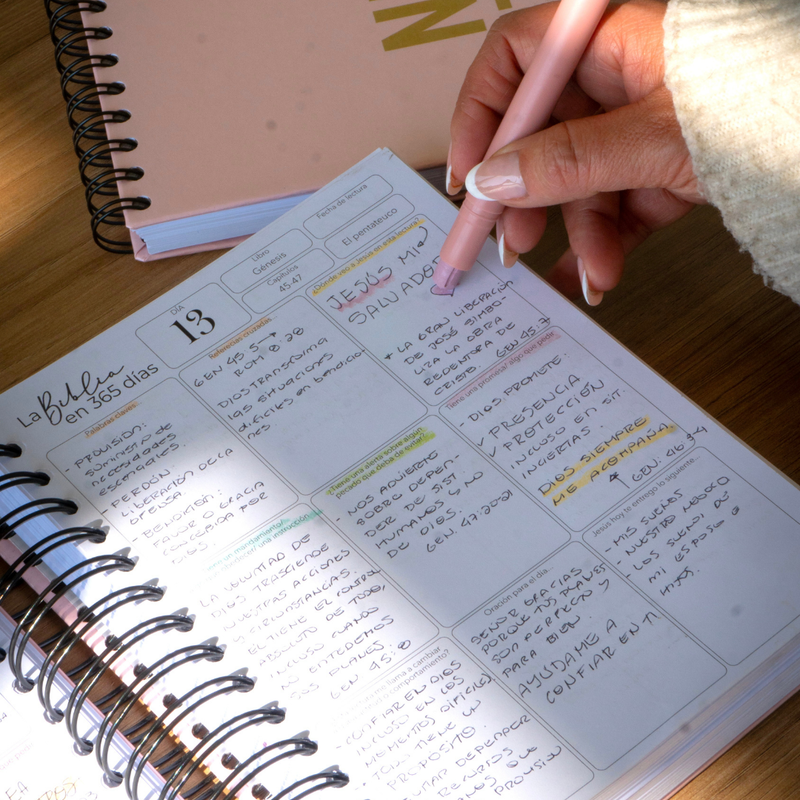 N
La Biblia
en 365 días
DÍA
13
Libro
Génesis
Capítulos
45-47
Fecha de lectura
El pentateuco
Palabras claves:
- PROVISIÓN:
suministro de
necesidades
esenciales.
- PERDÓN:
LIBERACIÓN DE LA
OFENSA
- BENDICIÓN:
FAVOR O GRACIA
CONCEDIDA POR
DIOS
Referencias cruzadas
GEN 45:5 →
ROM 8:28
DIOS TRANSFORMA
las situaciones
difíciles en bendicio-
nes.
¿Dónde veo a Jesús en esta lectura?
JESÚS MI
SALVADOR
* LA GRAN LIBERACIÓN
DE JOSÉ SIMBO-
LIZA LA OBRA
REDENTORA DE
CRISTO. GEN 45:7
¿Tiene una promesa/ algo que pedir
- DIOS PROMETE:
✓ PRESENCIA
✓ PROTECCIÓN
INCLUSO EN SIT.
INCIERTAS.
DIOS SIEMPRE
ME ACOMPAÑA.
GEN. 46:3-4
¿Tiene una alerta sobre algún
pecado que deba de evitar?
- NOS ADVIERTE
SOBRE DEPEN-
DER DE SIST.
HUMANOS Y NO
DE DIOS.
GEN. 47:20-21
mandamiento/
instrucción
LA VOLUNTAD DE
DIOS TRASCIENDE
NUESTRAS ACCIONES
Y CIRCUNSTANCIAS.
ÉL TIENE EL CONTROL
ABSOLUTO DE TODO,
INCLUSO CUANDO
NO ENTENDEMOS
SUS PLANES
GEN 45:8
Jesús hoy te entrego lo siguiente...
- MIS SUEÑOS
- NUESTRO NEGOCIO
LOS SUEÑOS DE
MI ESPOSO E
HIJOS.
Oración para el día...
SEÑOR GRACIAS
PORQUE TUS PLANES
SON PERFECTOS Y
PARA BIEN.
AYÚDAME A
CONFIAR EN TI
me llama a cambiar
comportamiento?
- CONFIAR EN DIOS
INCLUSO EN LOS
MOMENTOS DIFÍCILES.
TODO TIENE UN
PROPÓSITO.
DEPENDER
RECURSOS
QUE
PROVISIÓN